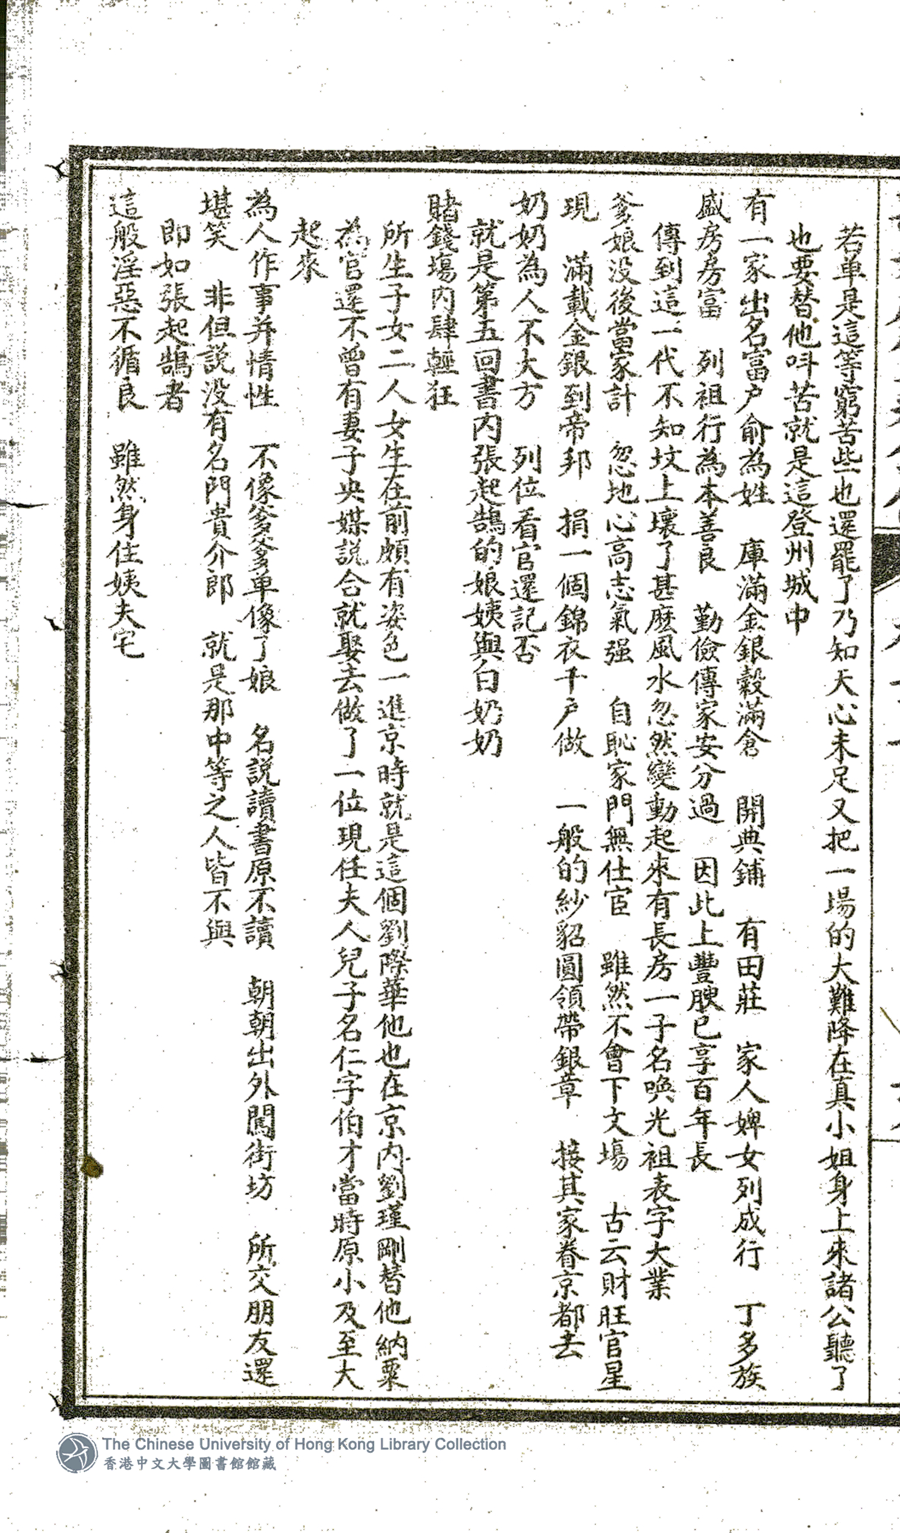 若單是這等窮苦些也還罷了乃知天心未足又把一場的大難降在真小姐身上來諸公聽了
也要替他呌苦就是這登州城中
有一家出名富户俞為姓　庫滿金銀穀滿倉　開典鋪　有田莊　家人婢女列成行　丁多族
盛房房富　列祖行為本善良　勤儉傳家安分過　因此上豐腴已享百年長
傳到這一代不知坟上壞了甚麽風水忽然變動起來有長房一子名喚光祖表字大業
爹娘没後當家計　忽地心高志氣强　自恥家門無仕宦　雖然不會下文塲　古云財旺官星
現　滿載金銀到帝邦　捐一個錦衣千户做　一般的紗貂圓領帶銀章　接其家眷京都去
奶奶為人不大方　列位看官還記否
就是第五回書内張起鵠的娘姨與白奶奶
賭錢塲内肆輕狂
所生子女二人女生在前頗有姿色一進京時就是這個劉際華他也在京内劉瑾剛替他納粟
為官還不曾有妻子央媒説合就娶去做了一位現任夫人兒子名仁字伯才當時原小及至大
起來
為人作事并情性　不像爹爹单像了娘　名説讀書原不讀　朝朝出外闖街坊　所交朋友還
堪笑　非但説没有名門貴介郎　就是那中等之人皆不與
即如張起鵠者
這般淫惡不循良　雖然身住姨夫宅
The Chinese University of Hong Kong Library Collection
香港中文大學圖書館館藏